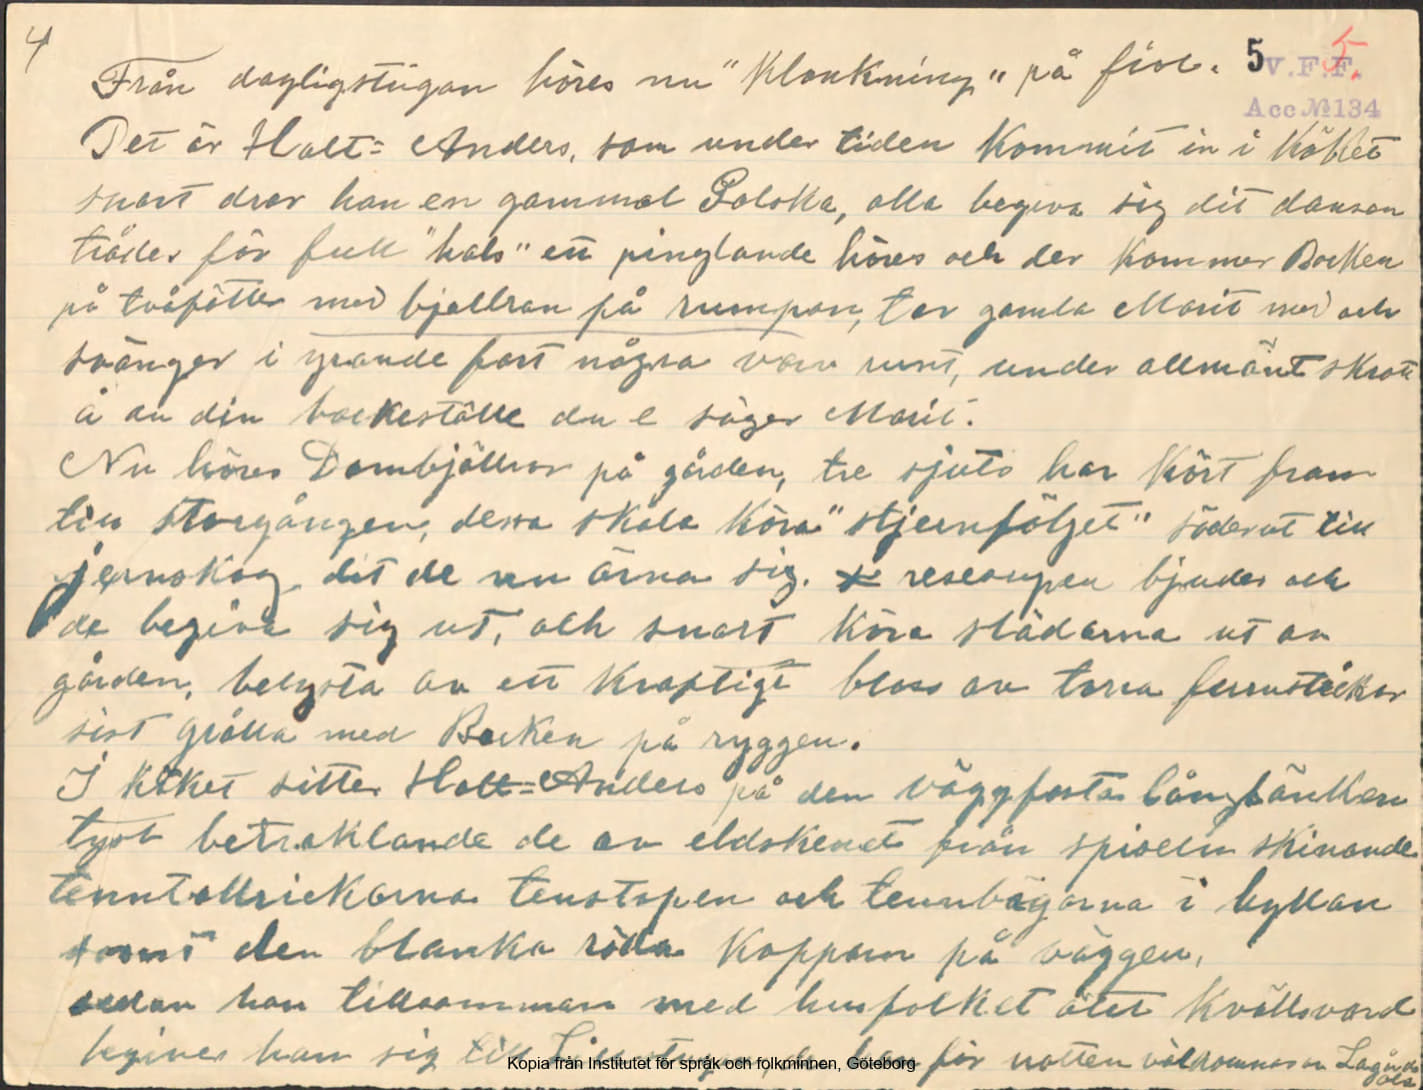 4
5 5.
V.F.F.
Acc № 134
Från dagligstugan höres nu "Klonkning" på fiol.
Det är Holt=Anders, som under tiden kommit in i Köket
snart drar han en gammal Polska, alla begiva sig dit dansen
tråder för full "hals" ett pinglande höres och der kommer Bocken
på tvåfötter med bjellran på rumpan, tar gamla Marit med och
svänger i yrande fart några varv runt, under allmänt skratt
å du din bockeställe du e säger Marit.
Nu höres Dombjällror på gården, tre sjuts har Kört fram
till storgången, dessa skola Köra "stjernföljet" söderut till
jernskog, dit de nu ärna sig. resesupen bjudes och
de begiva sig ut, och snart Köra slädarna ut av
gården, belysta av ett Kraftigt bloss av torra furustickor
sist gråtta med Bocken på ryggen.
I köket sitter Holt=Anders på den väggfasta långbänken
tyst betraktande de av eldskenet från spiseln skinande
tenntallrickarna tenstopen och tennbägarna i hyllan
samt den blanka röda Kopparn på väggen,
sedan han tillsamman med husfolket ätit Kvällsvard
begiver han sig till för natten
Kopia från Institutet för språk och folkminnen, Göteborg